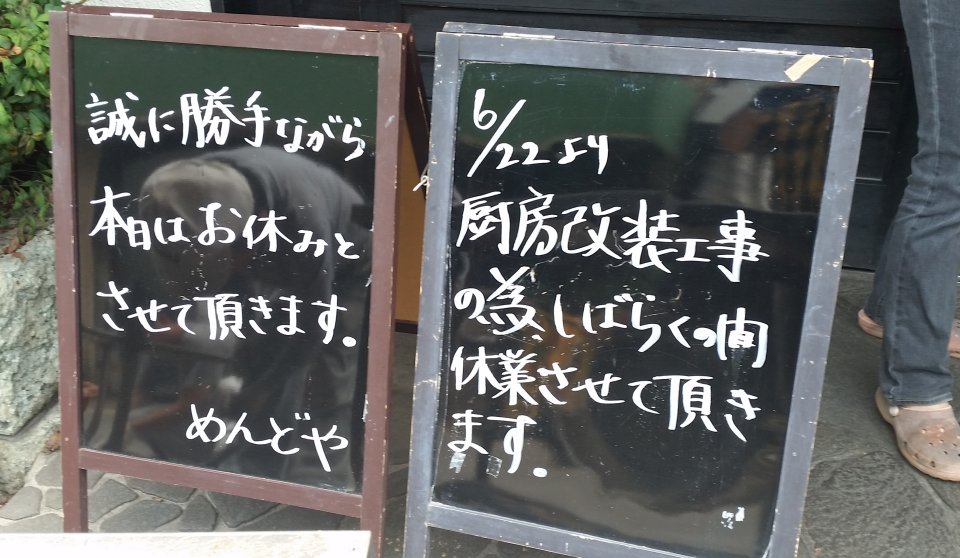 誠に勝手ながら
本日はお休みと
させて頂きます。
めんどや
6/22より
厨房改装工事
の為、しばらくの間
休業させて頂き
ます。